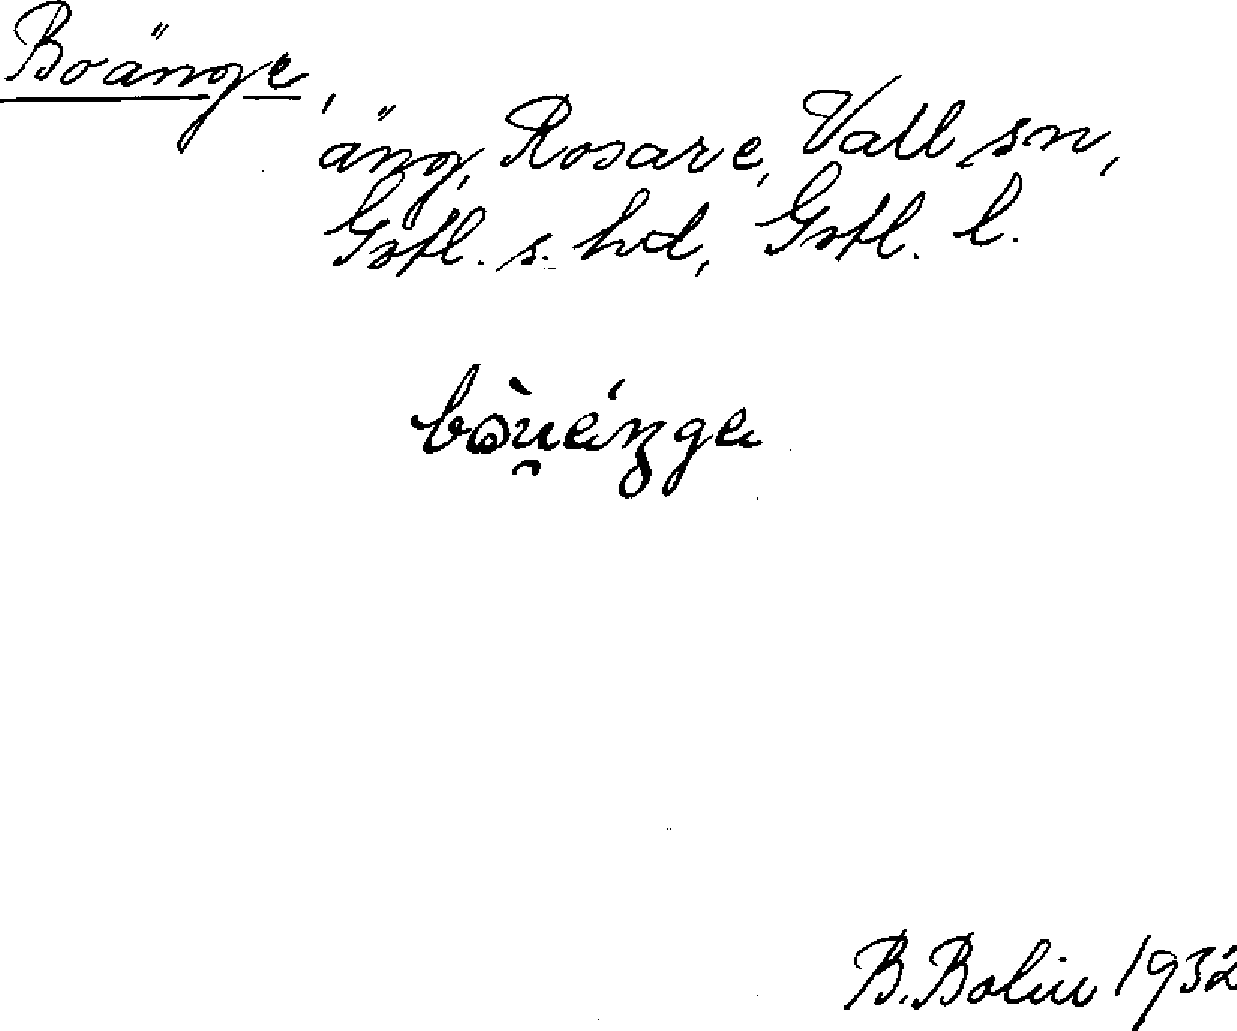 Boänge,
äng, Rosare, Vall sn,
Gotl. s. hd, Gotl. l.
B. Bolin 1932